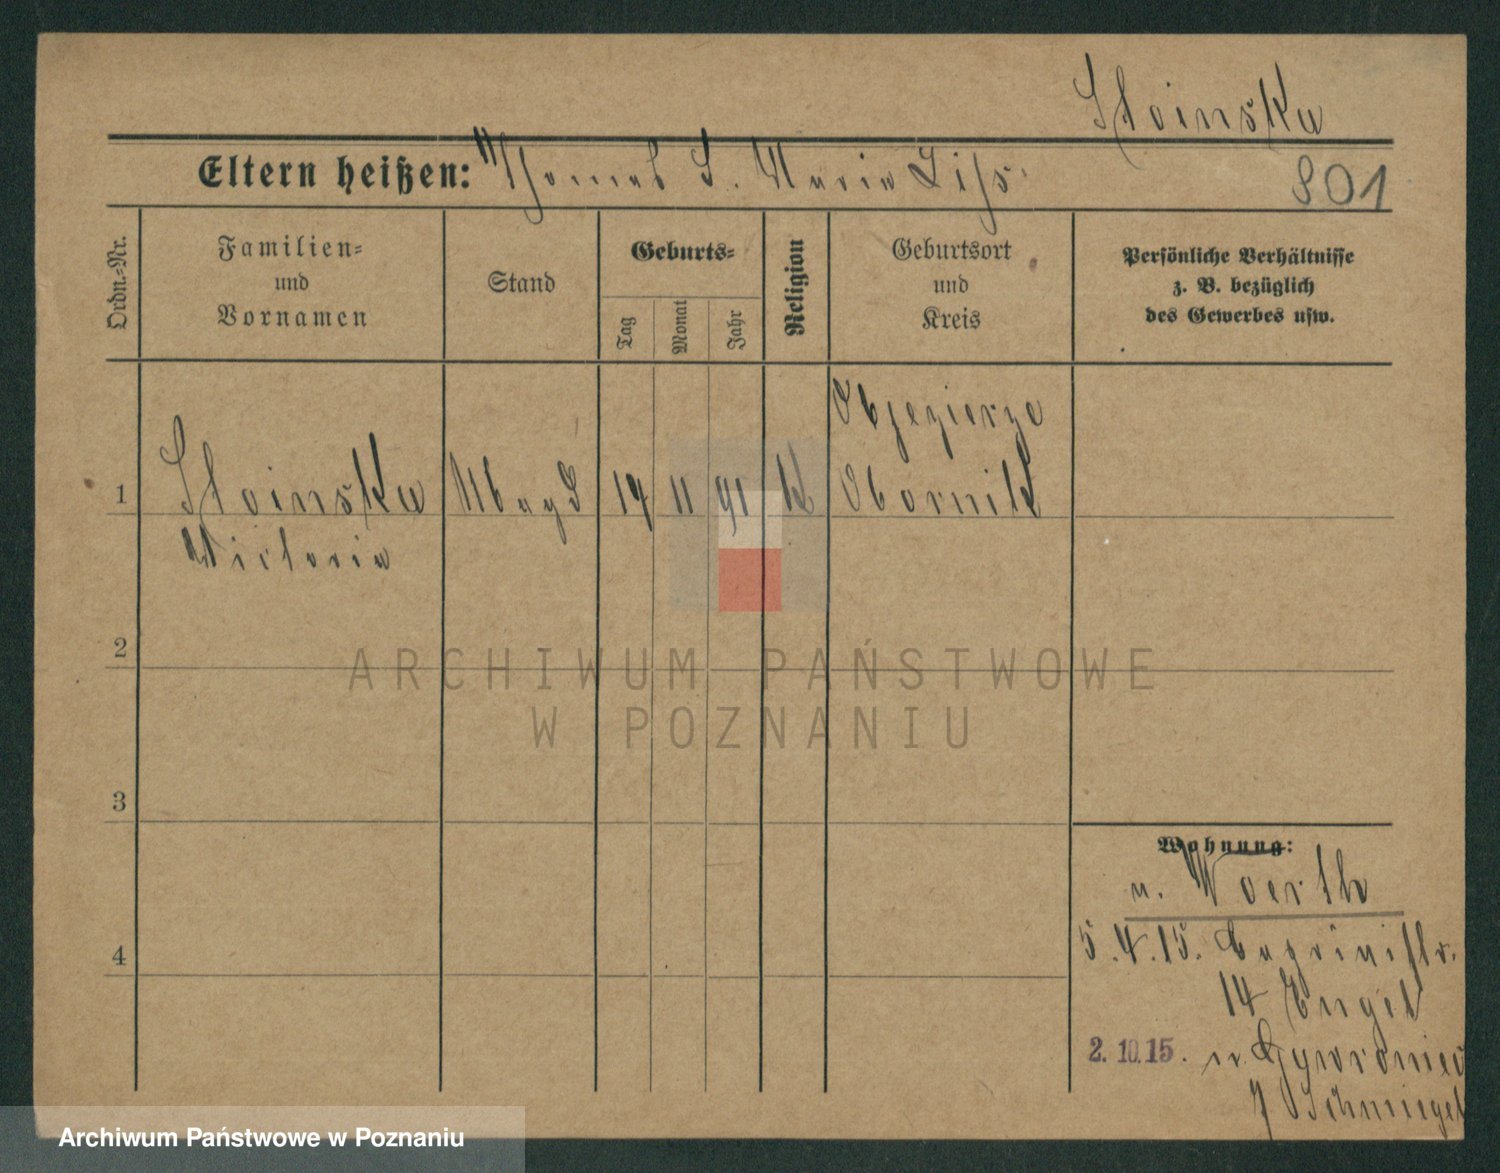 Stoinska
Eltern heißen: Thomas S. Maria Liss.
801
Ordn.-Nr.
Familien-
und
Vornamen
Stand
Geburts-
Tag
Monat
Jahr
Religion
Geburtsort
und
Kreis
Persönliche Verhältnisse
z. B. bezüglich
des Gewerbes usw.
Objezierze
1 Stoinska Magd 14 11 91 K Obornik
Victoria
2
ARCHIWUM PAŃSTWOWE
W POZNANIU
3
Wohnung:
n. Woerth
4
5.4.15.
14 Engel
2.10.15. n.
Schmiegel
Archiwum Państwowe w Poznaniu